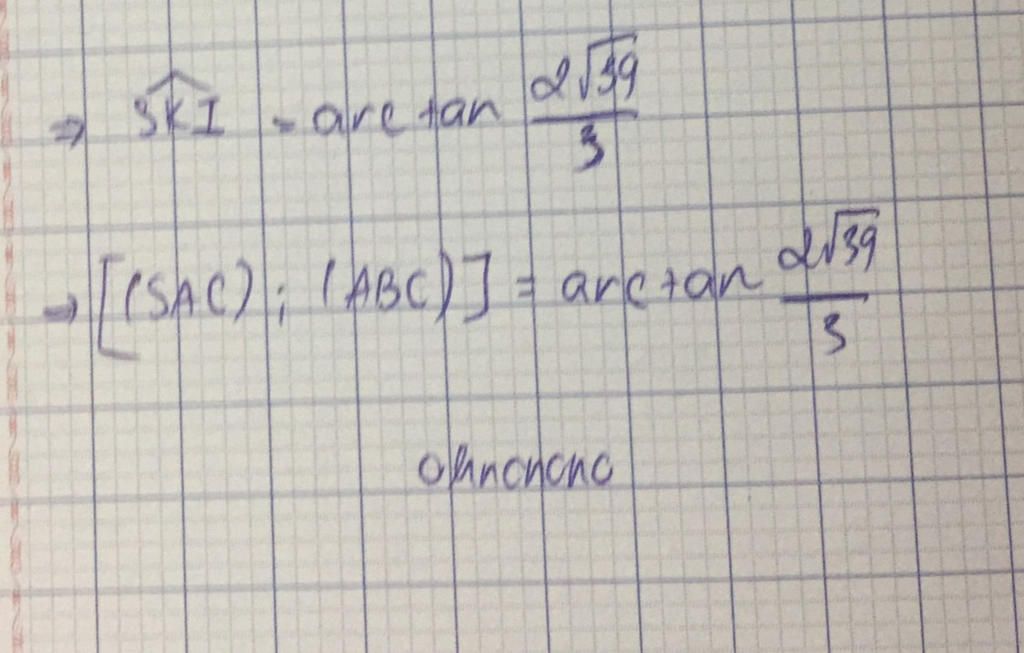 ⇒ \widehat{SKI} = arctan \frac{2\sqrt{39}}{3}
⇒ [(SAC); (ABC)] = arctan \frac{2\sqrt{39}}{3}